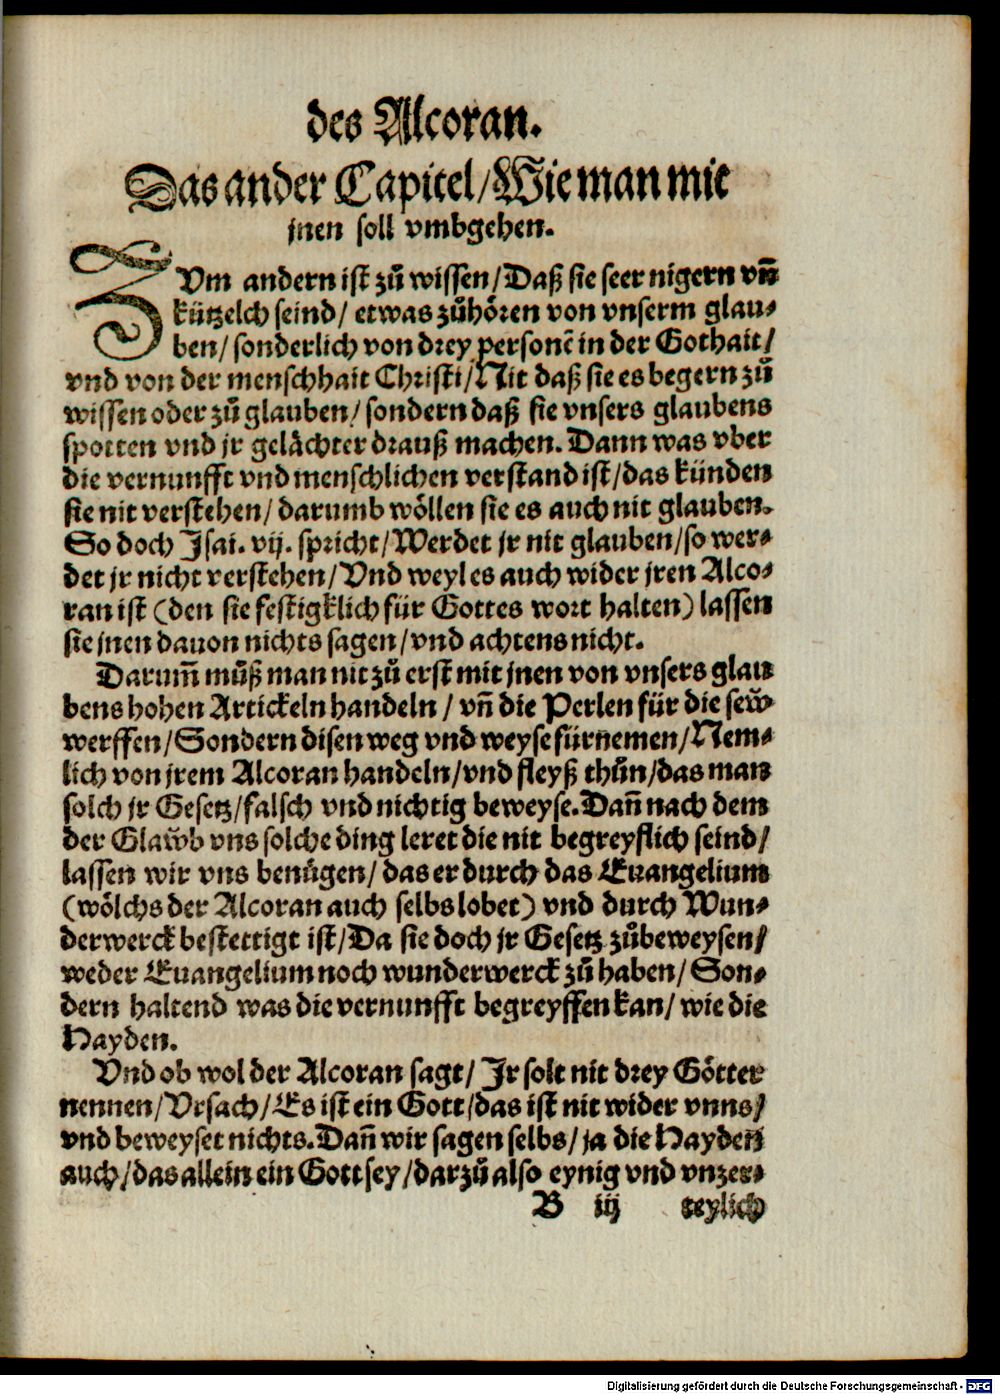 des Alcoran.
Das ander Capitel/ Wie man mit
jnen soll vmbgehen.
ZVm andern ist zů wissen/ Daß sie seer nigern vñ
kützelch seind/ etwas zůhören von vnserm glau-
ben/ sonderlich von drey personẽ in der Gothait/
vnd von der menschhait Christi/ Nit daß sie es begern zů
wissen oder zů glauben/ sondern daß sie vnsers glaubens
spotten vnd jr gelächter drauß machen. Dann was vber
die vernunfft vnd menschlichen verstand ist/ das künden
sie nit verstehen/ darumb wöllen sie es auch nit glauben.
So doch Jsai. vij. spricht/ Werdet jr nit glauben/ so wer-
det jr nicht verstehen/ Vnd weyl es auch wider jren Alco-
ran ist (den sie festigklich für Gottes wort halten) lassen
sie jnen dauon nichts sagen/ vnd achtens nicht.
Darum̃ můß man nit zů erst mit jnen von vnsers glau
bens hohen Artickeln handeln/ vñ die Perlen für die sew̆
werffen/ Sondern disen weg vnd weyse fürnemen/ Nem-
lich von jrem Alcoran handeln/ vnd fleyß thůn/ das man
solch jr Gesetz/ falsch vnd nichtig beweyse. Dañ nach dem
der Glaw̆b vns solche ding leret die nit begreyflich seind/
lassen wir vns benügen/ das er durch das Euangelium
(wölchs der Alcoran auch selbs lobet) vnd durch Wun-
derwerck bestettigt ist/ Da sie doch jr Gesetz zůbeweysen/
weder Euangelium noch wunderwerck zů haben/ Son-
dern haltend was die vernunfft begreyffen kan/ wie die
Hayden.
Vnd ob wol der Alcoran sagt/ Jr solt nit drey Götter
nennen/ Vrsach/ Es ist ein Gott/ das ist nit wider vnns/
vnd beweyset nichts. Dañ wir sagen selbs/ ja die Hayden
auch/ das allein ein Gott sey/ darzů also eynig vnd vnzer-
B iij teylich
Digitalisierung gefördert durch die Deutsche Forschungsgemeinschaft - DFG